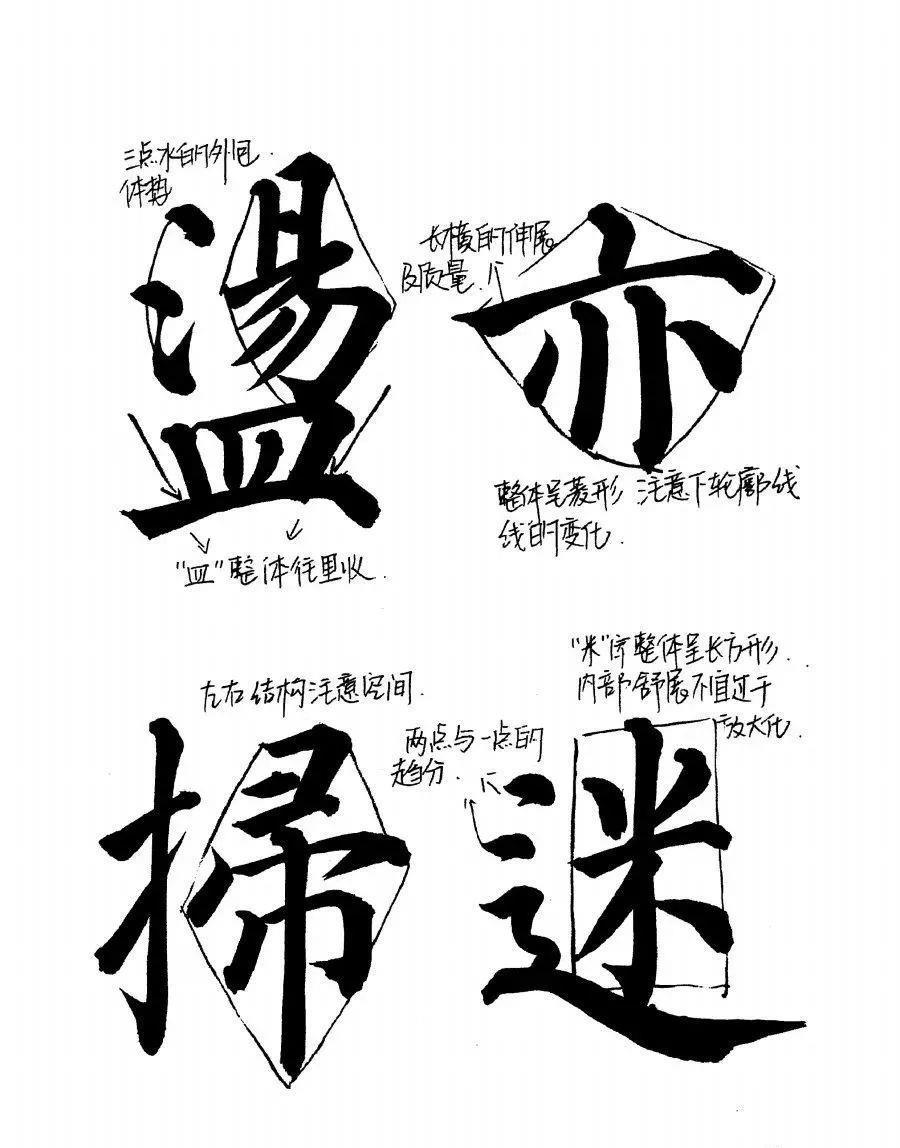 三点水的外包
体势
盪
"皿"整体往里收.
长横的伸展
及质量.
亦
整体呈菱形 注意下轮廓线
线的变化.
左右结构注意空间.
掃
"米"字整体呈长方形.
内部舒展不宜过于
放大化.
两点与一点的
趋分.
迷